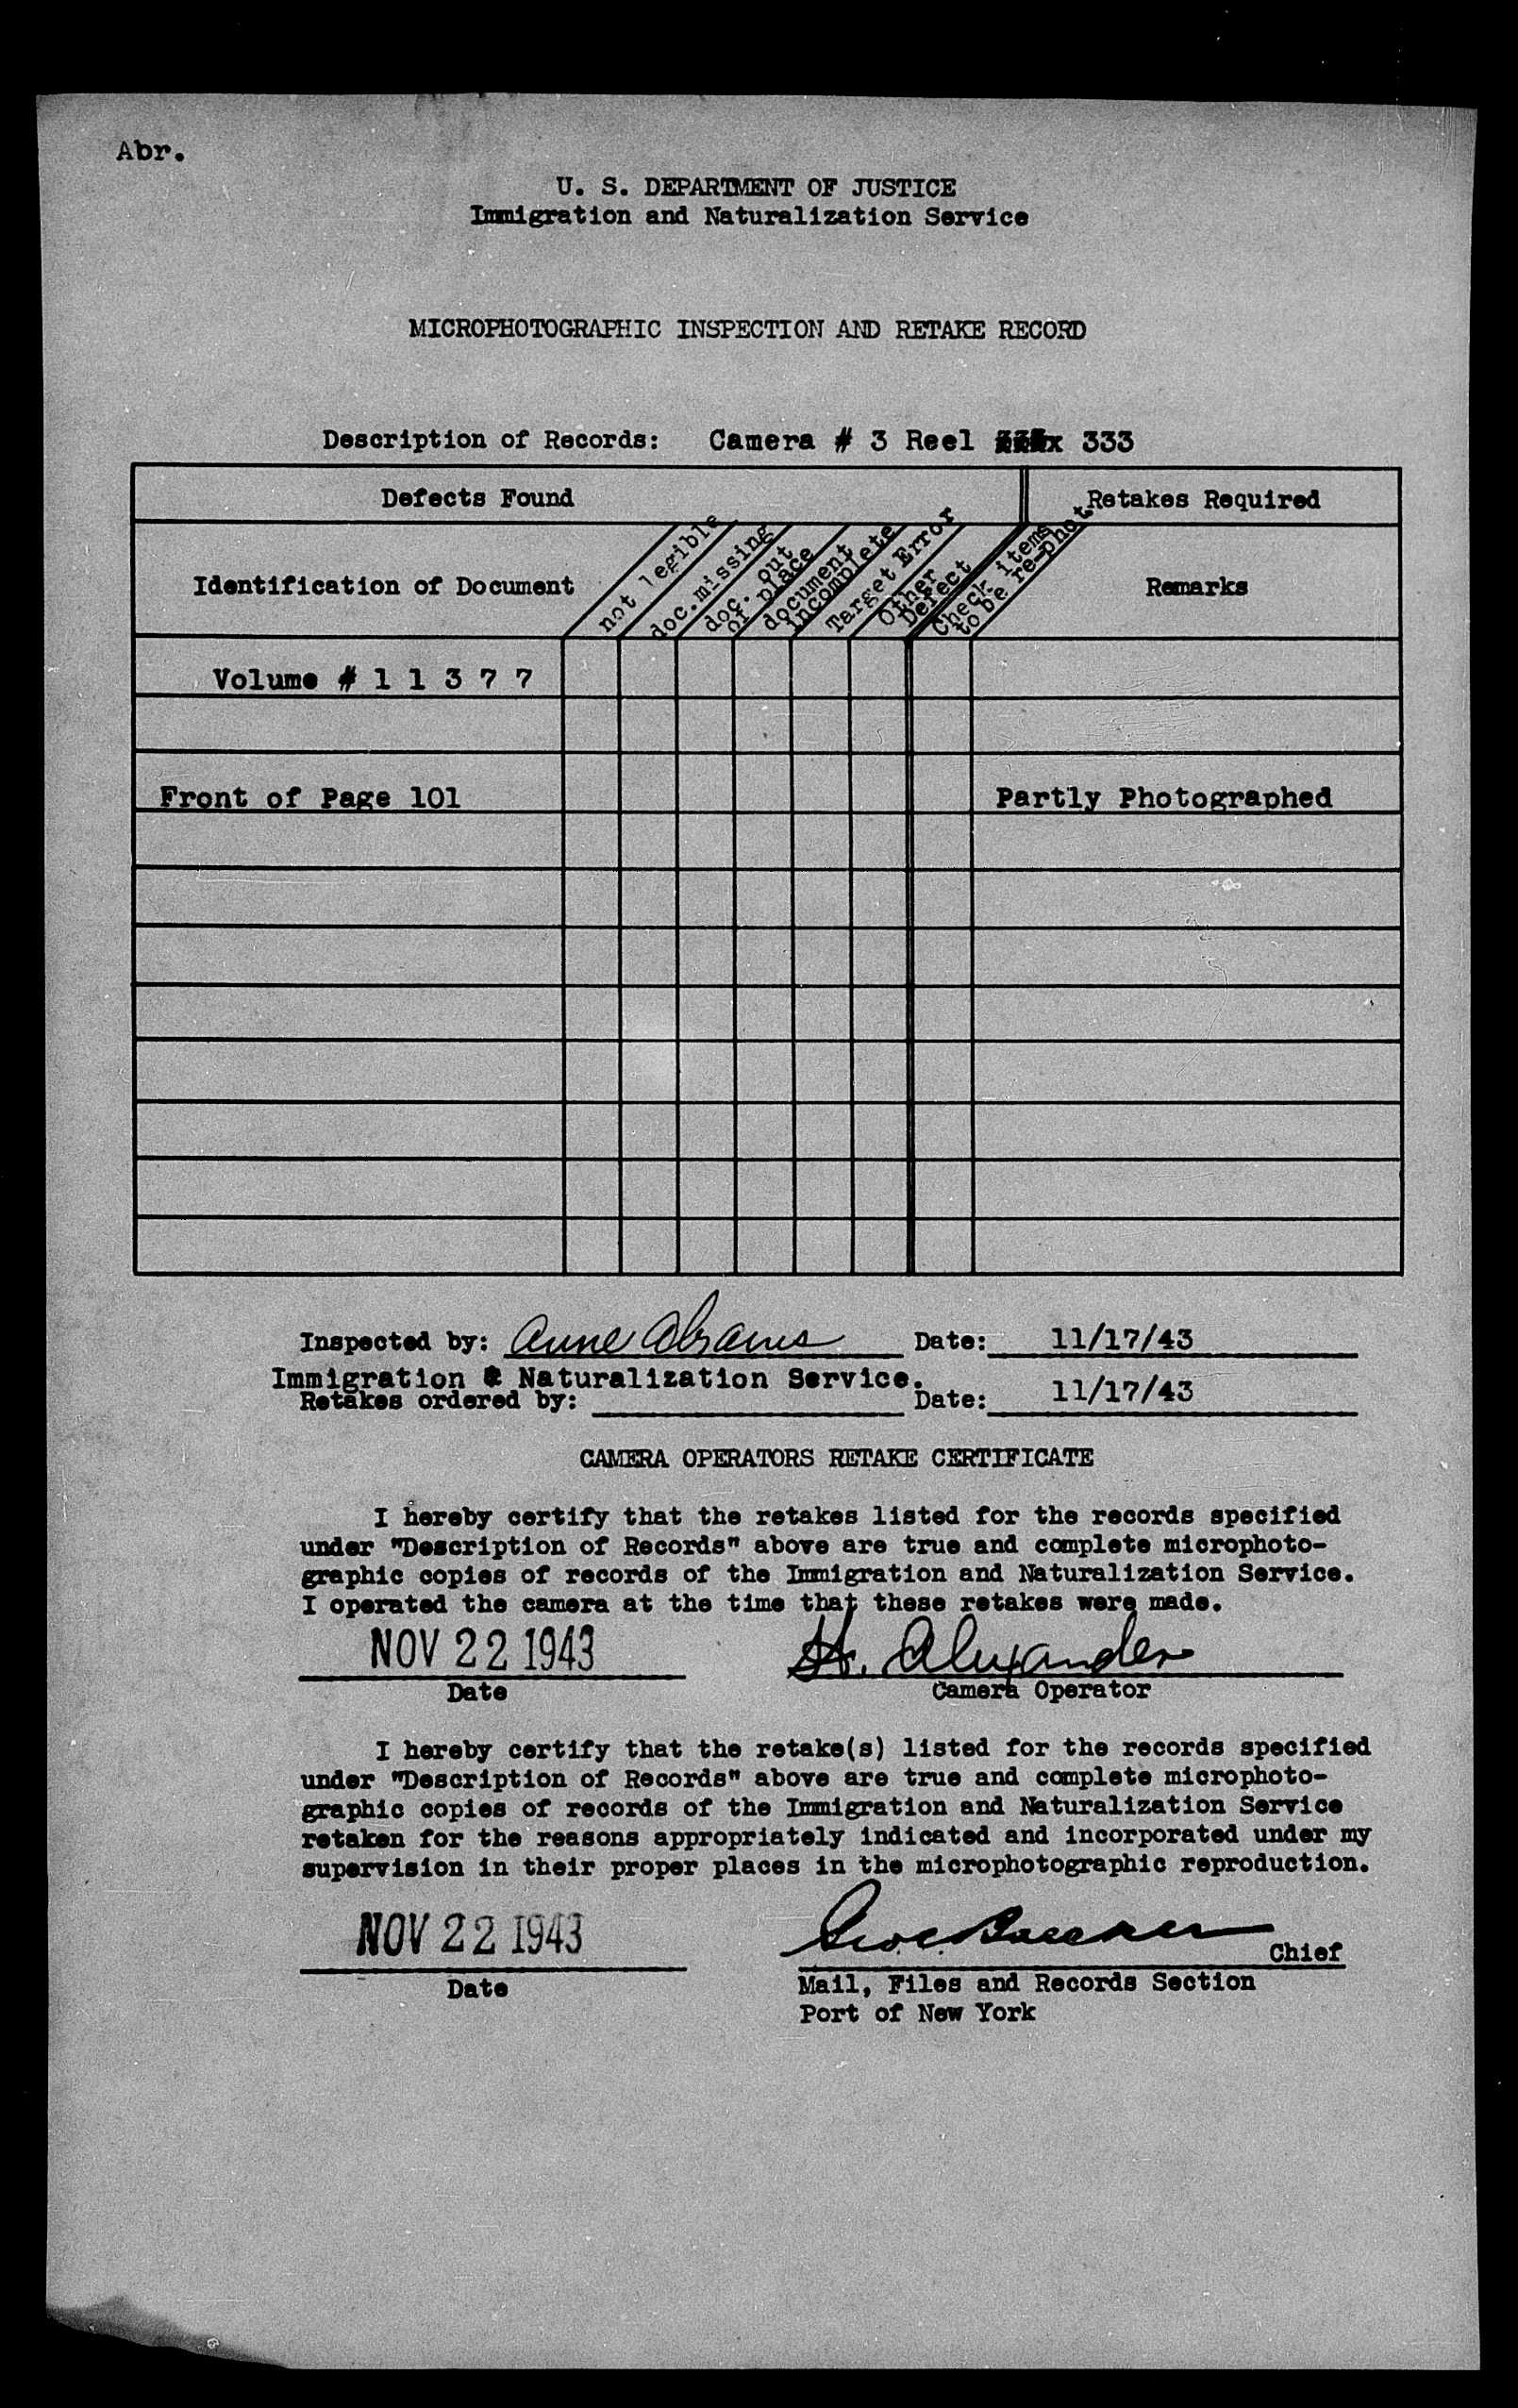 Abr.
U. S. DEPARTMENT OF JUSTICE
Immigration and Naturalization Service
MICROPHOTOGRAPHIC INSPECTION AND RETAKE RECORD
Description of Records: Camera # 3 Reel 333
Defects Found
Retakes Required
Identification of Document
not legible
doc. missing
doc. out
of place
document
incomplete
Target Error
Other
Defect
Check items
to be re-phot
Remarks
Volume # 1 1 3 7 7
Front of Page 101
Partly Photographed
Inspected by: Anne Abrams Date: 11/17/43
Immigration & Naturalization Service.
Retakes ordered by: Date: 11/17/43
CAMERA OPERATORS RETAKE CERTIFICATE
I hereby certify that the retakes listed for the records specified
under "Description of Records" above are true and complete microphoto-
graphic copies of records of the Immigration and Naturalization Service.
I operated the camera at the time that these retakes were made.
NOV 22 1943 H. Alexander
Date Camera Operator
I hereby certify that the retake(s) listed for the records specified
under "Description of Records" above are true and complete microphoto-
graphic copies of records of the Immigration and Naturalization Service
retaken for the reasons appropriately indicated and incorporated under my
supervision in their proper places in the microphotographic reproduction.
NOV 22 1943 Chief
Date Mail, Files and Records Section
Port of New York